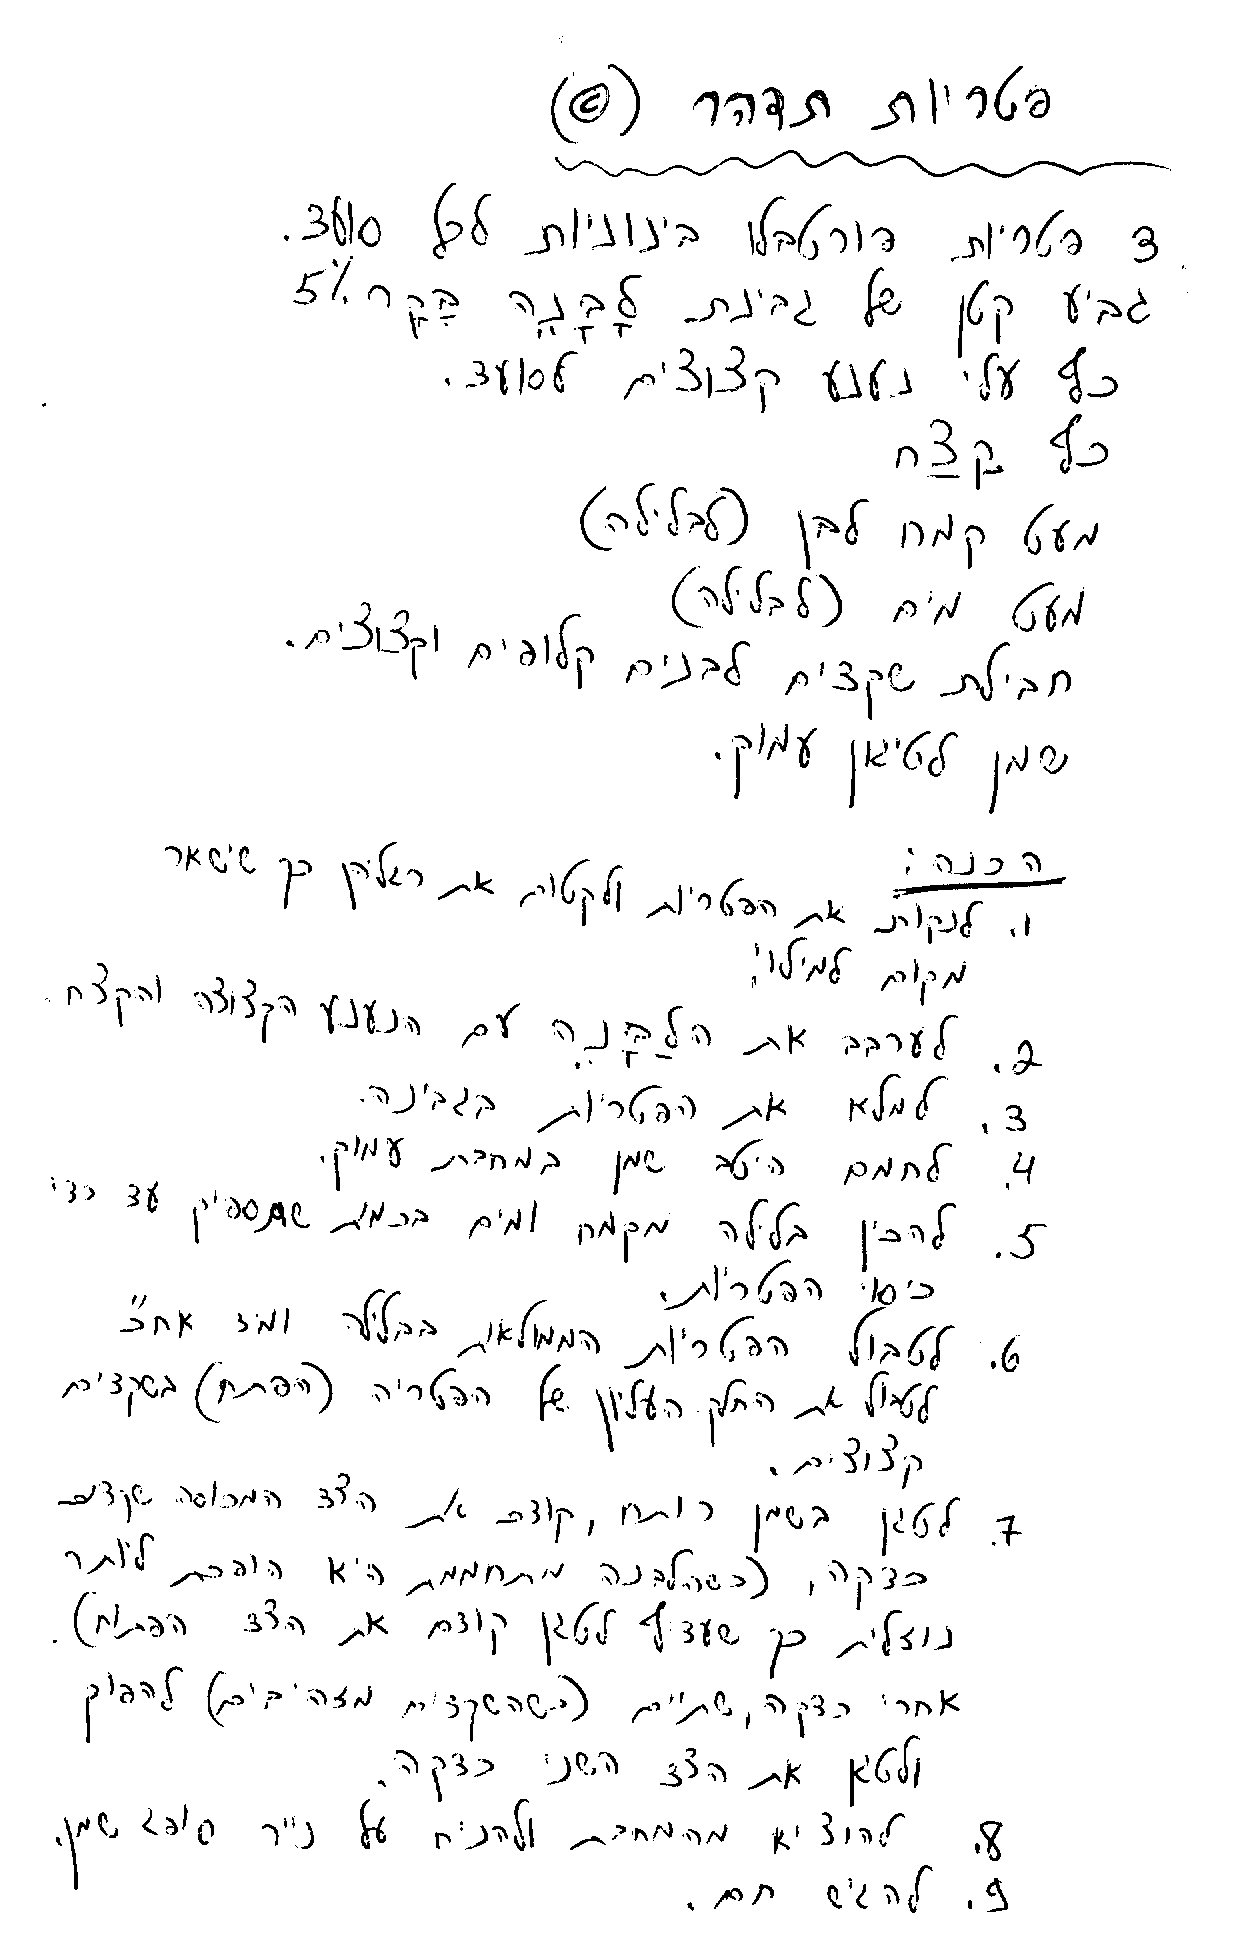 פטריות תדהר (©)
3 פטריות פורטבלו בינוניות לכל סועד.
גביע קטן של גבינת לָבָּנֶה בָּקָר 5%
כף עלי נענע קצוצים לסועד.
כף קֶצַח
מעט קמח לבן (לבלילה)
מעט מים (לבלילה)
חבילת שקדים לבנים קלופים וקצוצים.
שמן לטיגון עמוק.
הכנה:
1. לנקות את הפטריות ולקטום את רגליהן כך שישאר
מקום למילוי.
2. לערבב את הלַבָּנֶה עם הנענע הקצוצה והקצח.
3. למלא את הפטריות בגבינה.
4. לחמם היטב שמן במחבת עמוק.
5. להכין בלילה מקמח ומים בכמות שתספיק עד כדי
כיסוי הפטריות.
6. לטבול הפטריות הממולאות בבלילה ומיד אח"כ
לטבול את החלק העליון של הפטריה (הפתח) בשקדים
קצוצים.
7. לטגן בשמן רותח, קודם את הצד המכוסה שקדים
כדקה, (כשהלבנה מתחממת היא הופכת ליותר
נוזלית כך שעדיף לטגן קודם את הצד הפתוח).
אחרי כדקה, שתיים (כשהשקדים מזהיבים) להפוך
ולטגן את הצד השני כדקה.
8. להוציא מהמחבת ולהניח על נייר סופג שמן.
9. להגיש חם.